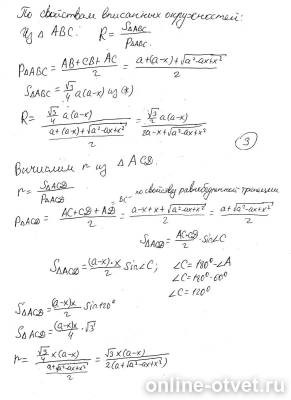 По свойствам вписанных окружностей:
Из △ ABC: R = S△ABC / P△ABC
P△ABC = (AB+CB+AC)/2 = (a+(a-x)+√(a²-ax+x²))/2
S△ABC = √3/4 a(a-x) из (*)
R = (√3/4 a(a-x)) / ((a+(a-x)+√(a²-ax+x²))/2) = (√3/2 a(a-x)) / (2a-x+√(a²-ax+x²))
③
Вычислим r из △ ACD:
r = S△ACD / P△ACD
BC по свойству равнобедренной трапеции
P△ACD = (AC+CD+AD)/2 = (a-x+x+√(a²-ax+x²))/2 = (a+√(a²-ax+x²))/2
S△ACD = AC·CD/2 · sin∠C
S△ACD = (a-x)·x/2 sin∠C; ∠C = 180°-∠A
∠C = 180°-60°
∠C = 120°
S△ACD = (a-x)x/2 sin120°
S△ACD = (a-x)x/4 · √3
r = (√3/4 x(a-x)) / ((a+√(a²-ax+x²))/2) = √3 x(a-x) / (2(a+√(a²-ax+x²)))
online-otvet.ru